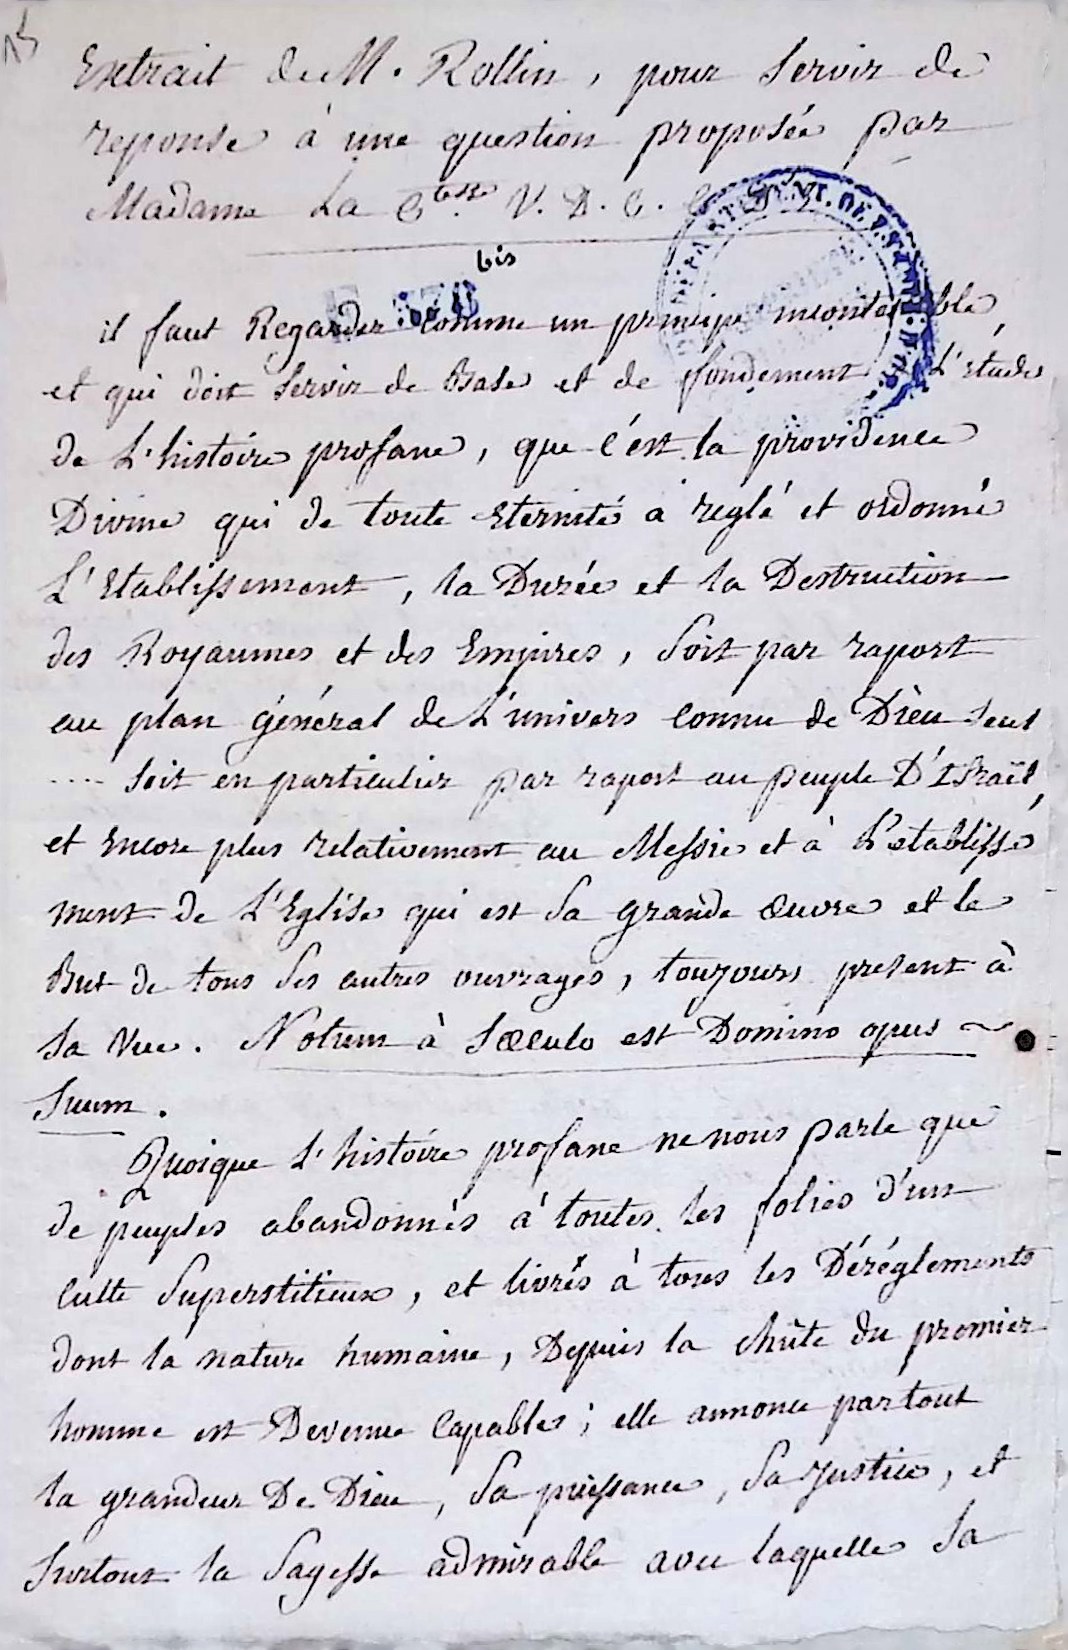 15
Extrait de M. Rollin, pour servir de
reponse à une question proposée par
Madame La C.tesse V. D. C.
bis
il faut Regarder comme un principe incontestable,
et qui doit servir de Base et de fondement L'étude
de L'histoire profane, que c'est la providence
Divine qui de toute Eternité a reglé et ordonné
L'Etablissement, la Durée et la Destruction
des Royaumes et des Empires, soit par raport
au plan général de L'univers connu de Dieu seul
.... soit en particulier par raport au peuple D'Israël,
et encore plus relativement au Messie et à L'établisse
ment de L'Eglise qui est sa grande œuvre et le
But de tous ses autres ouvrages, toujours present à
sa Vue. Notum à sæculo est Domino opus ~
suum.
Quoique L'histoire profane ne nous parle que
de peuples abandonnés à toutes les folies d'un
culte superstitieux, et livrés à tous les Déréglements
dont la nature humaine, Depuis la chûte du premier
homme est Devenue Capable; elle annonce partout
la grandeur De Dieu, sa puissance, sa justice, et
surtout la sagesse admirable avec laquelle sa